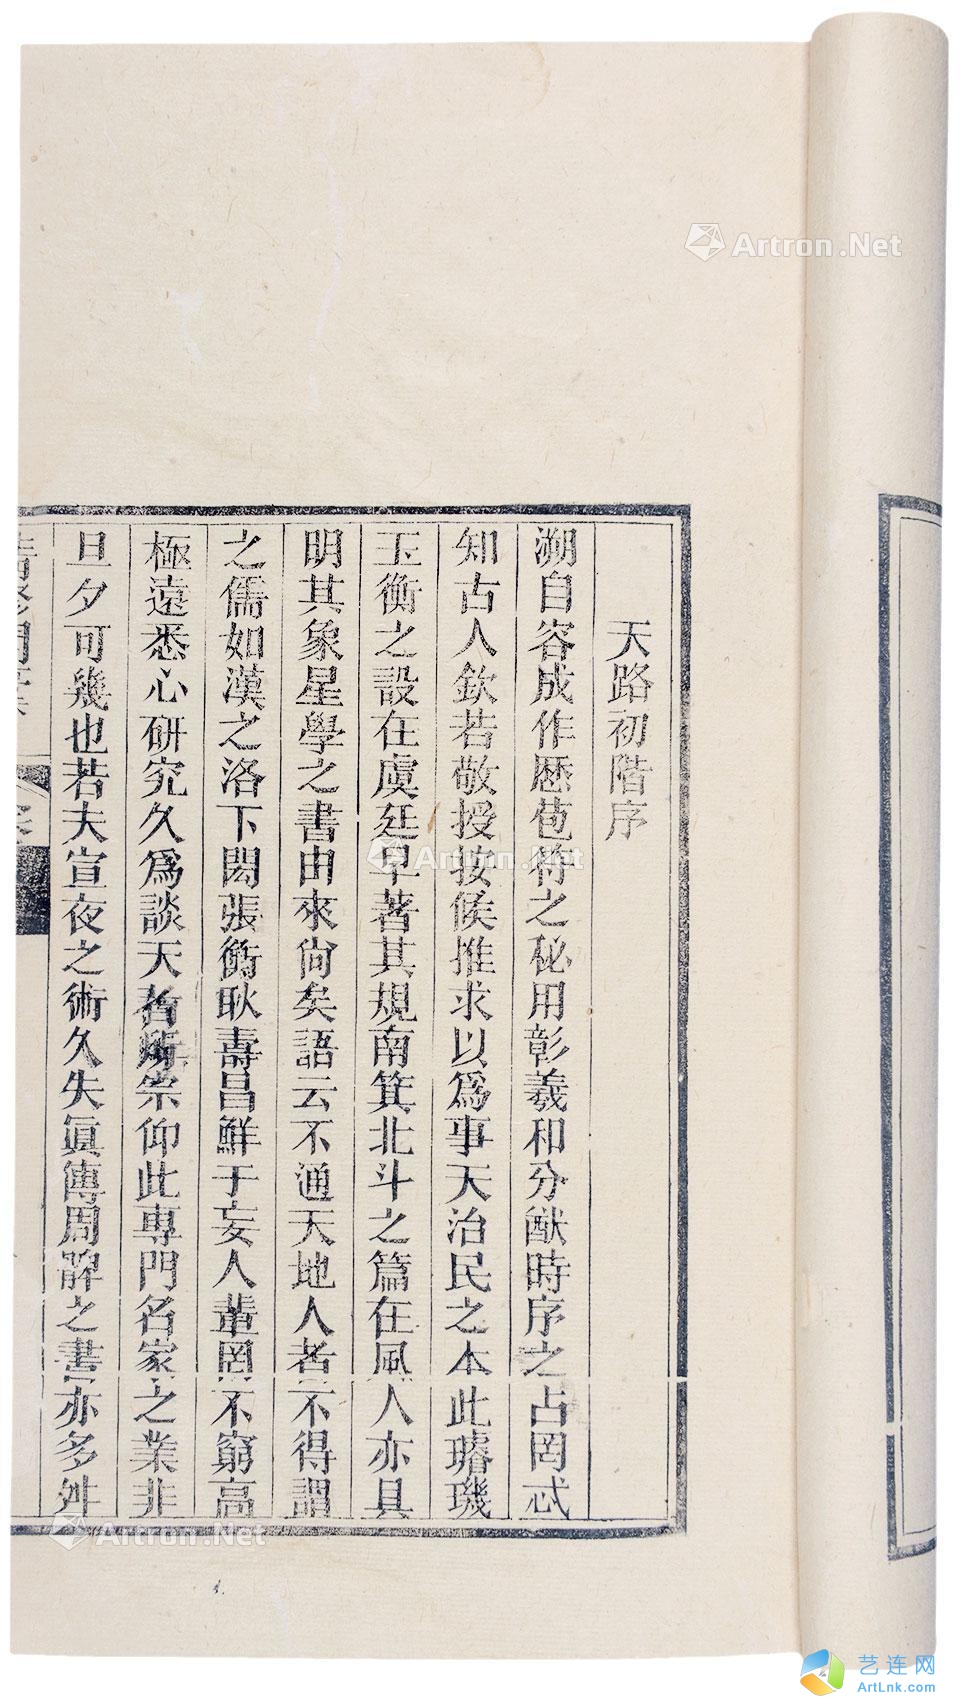 天路初階序
溯自容成作厯苞符之秘用彰羲和分猷時序之占罔忒
知古人欽若敬授按候推求以爲事天治民之本此璿璣
玉衡之設在虞廷早著其規南箕北斗之篇在風人亦具
明其象星學之書由來尙矣語云不通天地人者不得謂
之儒如漢之洛下閎張衡耿壽昌鮮于妄人輩罔不窮高
極遠悉心研究久爲談天者所宗仰此專門名家之業非
旦夕可幾也若夫宣夜之術久失眞傳周髀之書亦多舛
Artron.Net
Artron.Net
Artron.Net
艺连网
ArtLnk.com